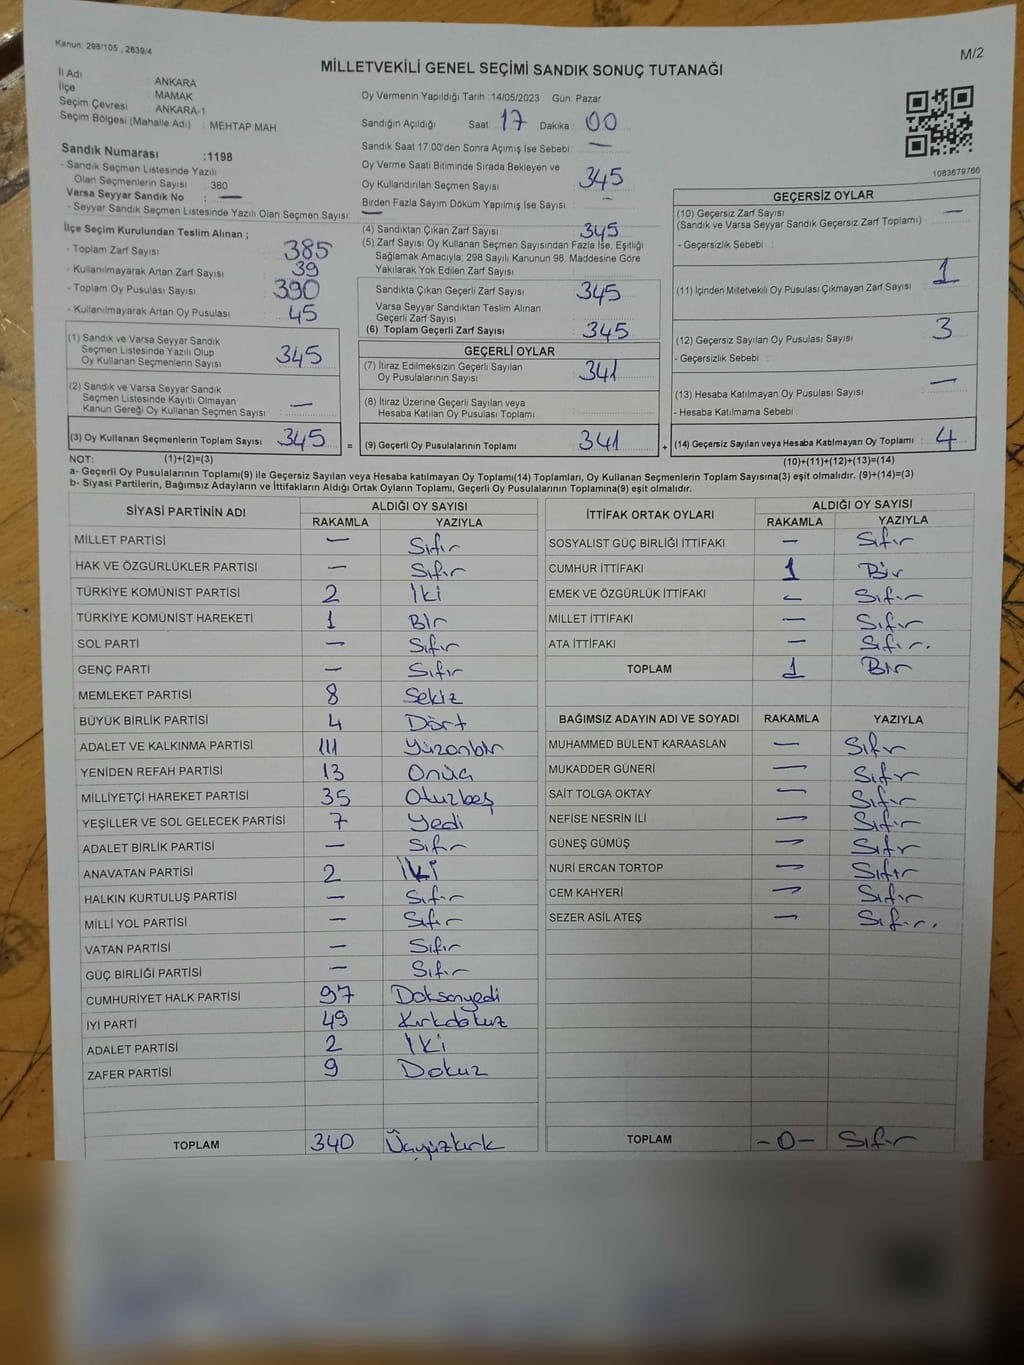 Kanun: 298/105 , 2839/4
M/2
MİLLETVEKİLİ GENEL SEÇİMİ SANDIK SONUÇ TUTANAĞI
İl Adı : ANKARA
İlçe : MAMAK
Seçim Çevresi : ANKARA-1
Seçim Bölgesi (Mahalle Adı) : MEHTAP MAH
Sandık Numarası :1198
- Sandık Seçmen Listesinde Yazılı
Olan Seçmenlerin Sayısı : 380
Varsa Seyyar Sandık No : —
- Seyyar Sandık Seçmen Listesinde Yazılı Olan Seçmen Sayısı: —
İlçe Seçim Kurulundan Teslim Alınan ;
- Toplam Zarf Sayısı : 385
- Kullanılmayarak Artan Zarf Sayısı : 39
- Toplam Oy Pusulası Sayısı : 390
- Kullanılmayarak Artan Oy Pusulası : 45
(1) Sandık ve Varsa Seyyar Sandık
Seçmen Listesinde Yazılı Olup
Oy Kullanan Seçmenlerin Sayısı : 345
(2) Sandık ve Varsa Seyyar Sandık
Seçmen Listesinde Kayıtlı Olmayan
Kanun Gereği Oy Kullanan Seçmen Sayısı : —
(3) Oy Kullanan Seçmenlerin Toplam Sayısı : 345
Oy Vermenin Yapıldığı Tarih :14/05/2023 Gün: Pazar
Sandığın Açıldığı Saat: 17 Dakika : 00
Sandık Saat 17.00'den Sonra Açımış İse Sebebi : —
Oy Verme Saati Bitiminde Sırada Bekleyen ve
Oy Kullandırılan Seçmen Sayısı : 345
Birden Fazla Sayım Döküm Yapılmış İse Sayısı : -
(4) Sandıktan Çıkan Zarf Sayısı : 345
(5) Zarf Sayısı Oy Kullanan Seçmen Sayısından Fazla İse, Eşitliği
Sağlamak Amacıyla; 298 Sayılı Kanunun 98. Maddesine Göre
Yakılarak Yok Edilen Zarf Sayısı :
Sandıkta Çıkan Geçerli Zarf Sayısı : 345
Varsa Seyyar Sandıktan Teslim Alınan
Geçerli Zarf Sayısı :
(6) Toplam Geçerli Zarf Sayısı : 345
GEÇERLİ OYLAR
(7) İtiraz Edilmeksizin Geçerli Sayılan
Oy Pusulalarının Sayısı : 341
(8) İtiraz Üzerine Geçerli Sayılan veya
Hesaba Katılan Oy Pusulası Toplamı :
= (9) Geçerli Oy Pusulalarının Toplamı : 341
1083679766
GEÇERSİZ OYLAR
(10) Geçersiz Zarf Sayısı : —
(Sandık ve Varsa Seyyar Sandık Geçersiz Zarf Toplamı)
- Geçersizlik Sebebi :
(11) İçinden Milletvekili Oy Pusulası Çıkmayan Zarf Sayısı : 1
(12) Geçersiz Sayılan Oy Pusulası Sayısı : 3
- Geçersizlik Sebebi :
(13) Hesaba Katılmayan Oy Pusulası Sayısı : —
- Hesaba Katılmama Sebebi :
+ (14) Geçersiz Sayılan veya Hesaba Katılmayan Oy Toplamı : 4
NOT: (1)+(2)=(3)
(10)+(11)+(12)+(13)=(14)
a- Geçerli Oy Pusulalarının Toplamı(9) ile Geçersiz Sayılan veya Hesaba katılmayan Oy Toplamı(14) Toplamları, Oy Kullanan Seçmenlerin Toplam Sayısına(3) eşit olmalıdır. (9)+(14)=(3)
b- Siyasi Partilerin, Bağımsız Adayların ve İttifakların Aldığı Ortak Oyların Toplamı, Geçerli Oy Pusulalarının Toplamına(9) eşit olmalıdır.
SİYASİ PARTİNİN ADI ALDIĞI OY SAYISI
RAKAMLA YAZIYLA
MİLLET PARTİSİ — Sıfır
HAK VE ÖZGÜRLÜKLER PARTİSİ — Sıfır
TÜRKİYE KOMÜNİST PARTİSİ 2 İki
TÜRKİYE KOMÜNİST HAREKETİ 1 Bir
SOL PARTİ — Sıfır
GENÇ PARTİ — Sıfır
MEMLEKET PARTİSİ 8 Sekiz
BÜYÜK BİRLİK PARTİSİ 4 Dört
ADALET VE KALKINMA PARTİSİ 111 Yüzonbir
YENİDEN REFAH PARTİSİ 13 Onüç
MİLLİYETÇİ HAREKET PARTİSİ 35 Otuzbeş
YEŞİLLER VE SOL GELECEK PARTİSİ 7 Yedi
ADALET BİRLİK PARTİSİ — Sıfır
ANAVATAN PARTİSİ 2 İki
HALKIN KURTULUŞ PARTİSİ — Sıfır
MİLLİ YOL PARTİSİ — Sıfır
VATAN PARTİSİ — Sıfır
GÜÇ BİRLİĞİ PARTİSİ — Sıfır
CUMHURİYET HALK PARTİSİ 97 Doksanyedi
İYİ PARTİ 49 Kırkdokuz
ADALET PARTİSİ 2 İki
ZAFER PARTİSİ 9 Dokuz
TOPLAM 340 Üçyüzkırk
İTTİFAK ORTAK OYLARI ALDIĞI OY SAYISI
RAKAMLA YAZIYLA
SOSYALİST GÜÇ BİRLİĞİ İTTİFAKI — Sıfır
CUMHUR İTTİFAKI 1 Bir
EMEK VE ÖZGÜRLÜK İTTİFAKI — Sıfır
MİLLET İTTİFAKI — Sıfır
ATA İTTİFAKI — Sıfır.
TOPLAM 1 Bir
BAĞIMSIZ ADAYIN ADI VE SOYADI RAKAMLA YAZIYLA
MUHAMMED BÜLENT KARAASLAN — Sıfır
MUKADDER GÜNERİ — Sıfır
SAİT TOLGA OKTAY — Sıfır
NEFİSE NESRİN İLİ — Sıfır
GÜNEŞ GÜMÜŞ — Sıfır
NURİ ERCAN TORTOP — Sıfır
CEM KAHYERİ — Sıfır
SEZER ASİL ATEŞ — Sıfır.
TOPLAM -0- Sıfır